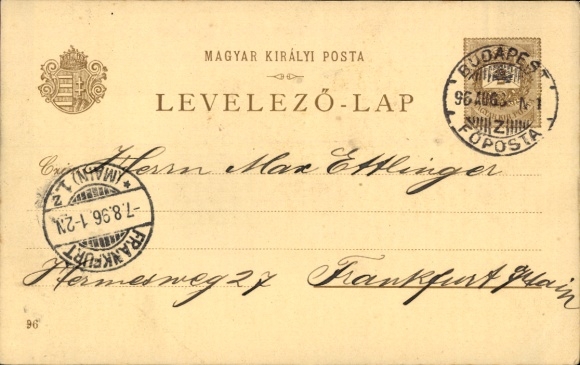 MAGYAR KIRÁLYI POSTA
LEVELEZŐ-LAP
BUDAPEST
96 AUG 6 N 1
FŐPOSTA
Herrn Max Ettlinger
FRANKFURT (MAIN) 1. Z
-7.8.96.1-2N.
Hermesweg 27 Frankfurt a/Main
96